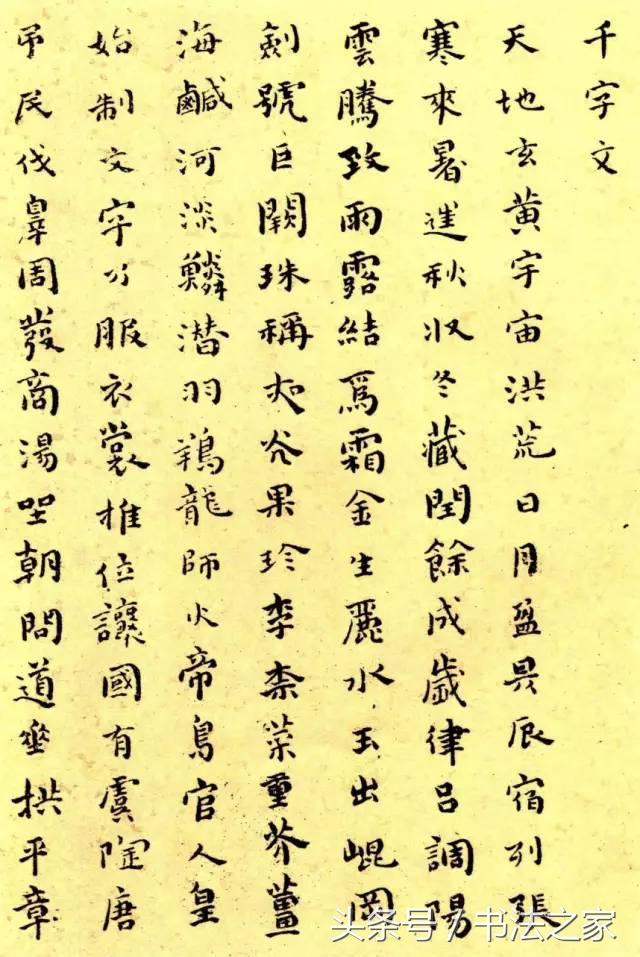 千字文
天地玄黄宇宙洪荒日月盈昃辰宿列張
寒來暑逞秋收冬藏閏餘成歲律吕調陽
雲騰致雨露結爲霜金生麗水玉出崐岡
劍號巨闕珠稱夜光果珍李柰菜重芥薑
海鹹河淡鱗潛羽翔龍師火帝鳥官人皇
始制文字乃服衣裳推位讓國有虞陶唐
弔民伐辠周發商湯坐朝問道垂拱平章
头条号 / 书法之家